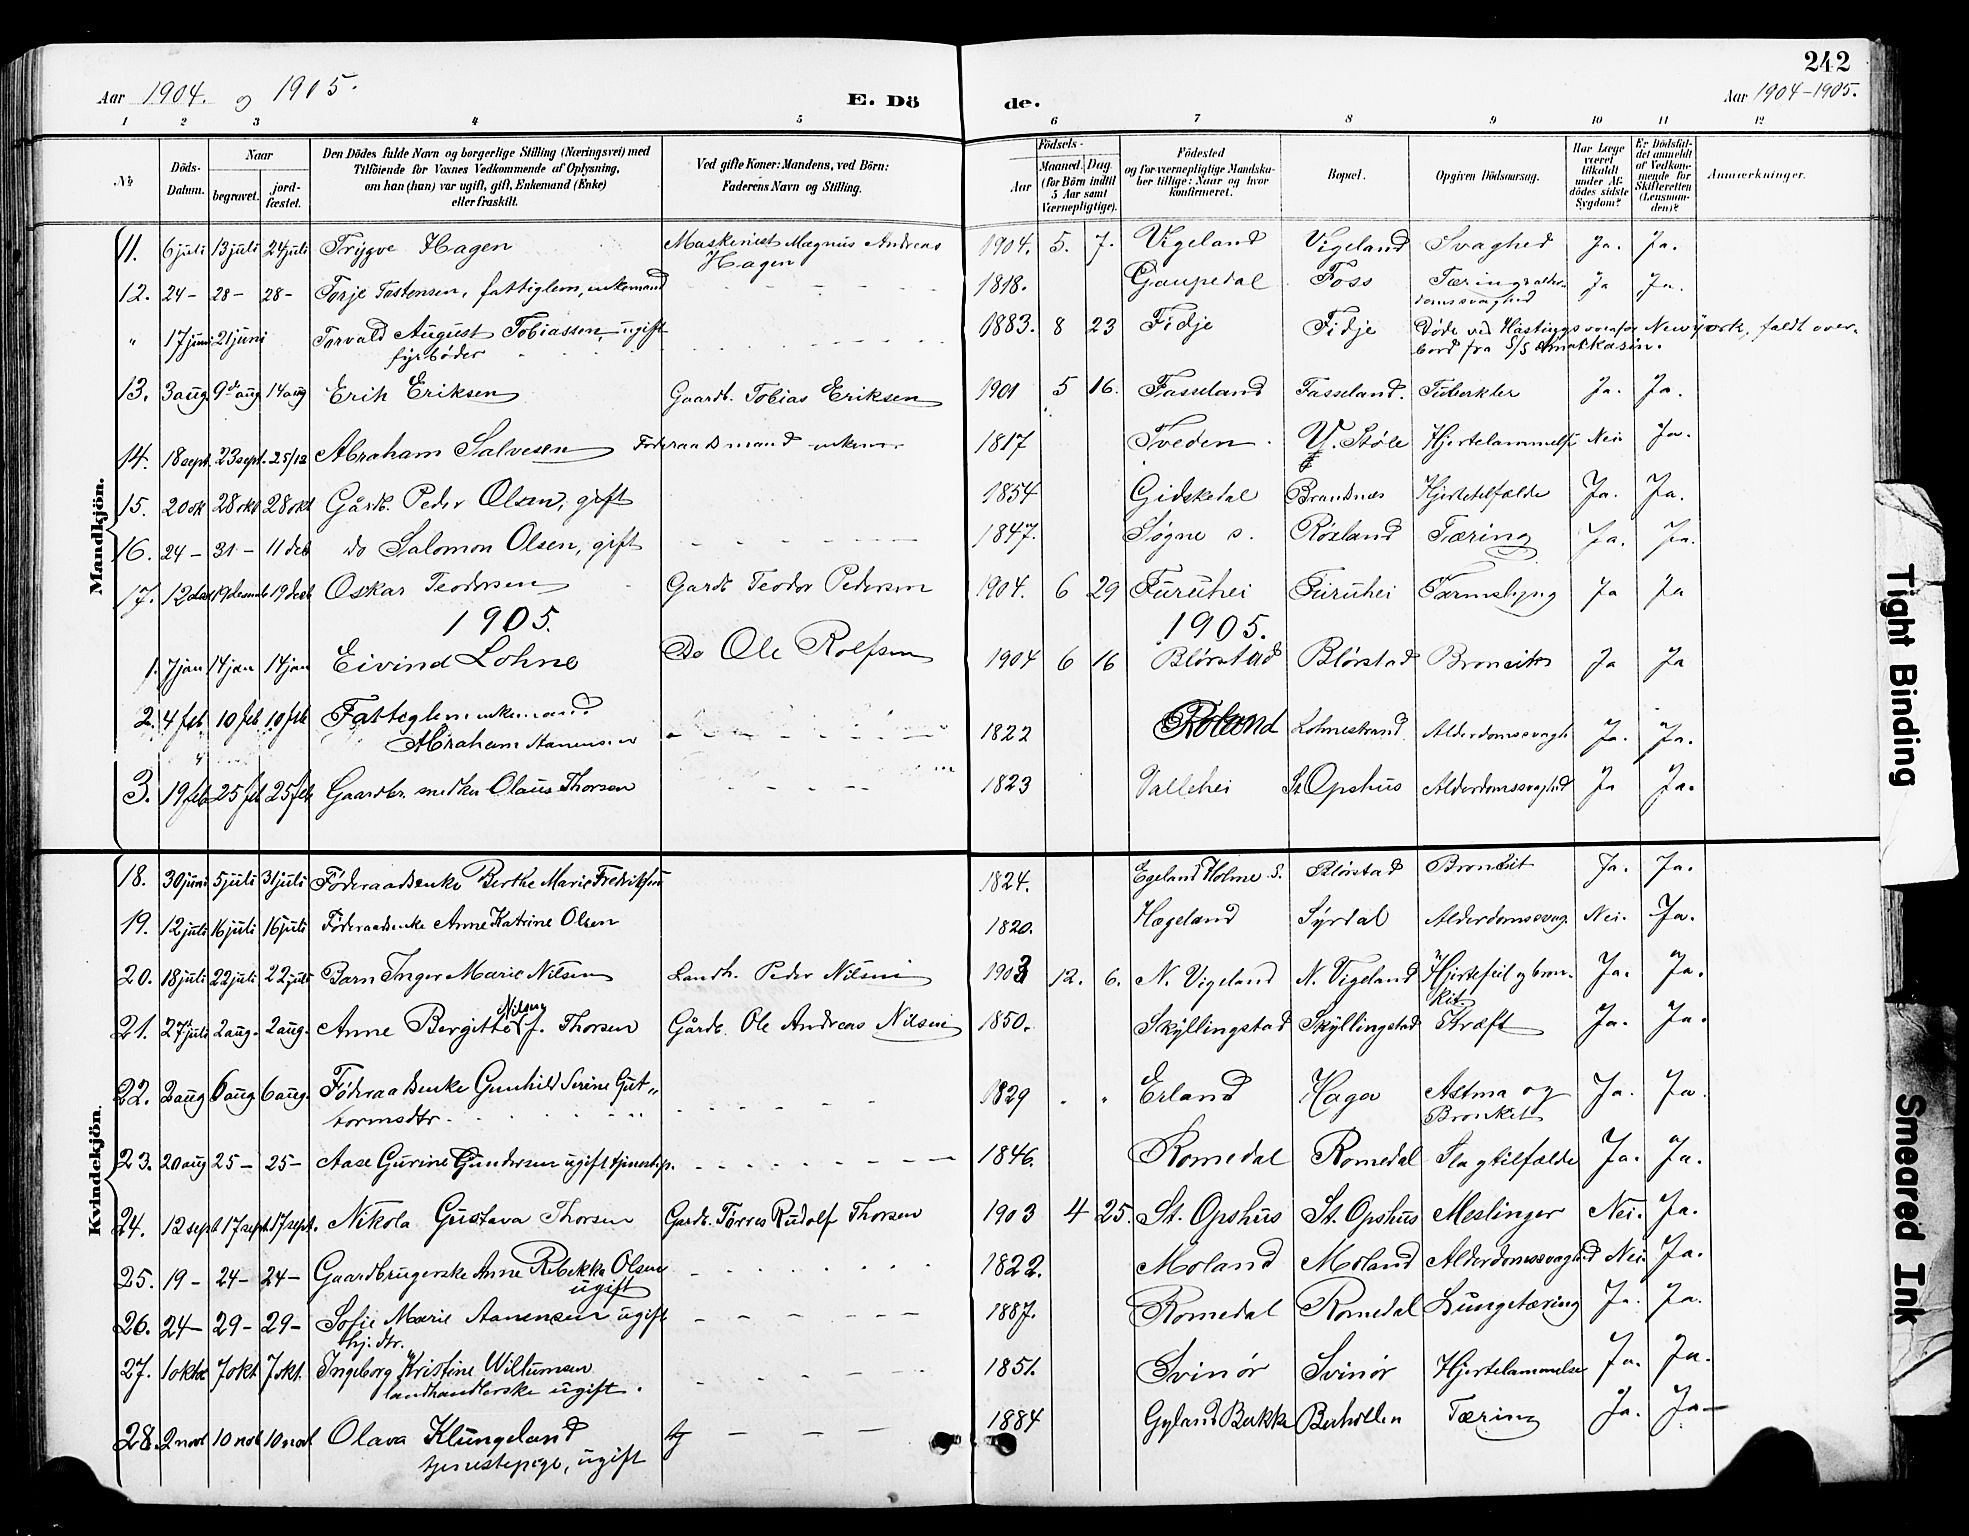 242
Aar 1904. og 1905. E. Dö de. Aar 1904-1905.
1 2 3 4 5 6 7 8 9 10 11 12
№ Döds-Datum. Naar begravet. jord-fæstet. Den Dödes fulde Navn og borgerlige Stilling (Næringsvei) med Tilföiende for Voxnes Vedkommende af Oplysning, om han (hun) var ugift, gift, Enkemand (Enke) eller fraskilt. Ved gifte Koner: Mandens, ved Börn: Faderens Navn og Stilling. Födsels- Aar Maaned. Dag. (for Börn indtil 5 Aar samt Værnepligtige). Födested og for værnepligtige Mandskaber tillige: Naar og hvor konfirmeret. Bopæl. Opgiven Dödsaarsag. Har Læge været tilkaldt under Afdödes sidste Sygdom? Er Dödsfaldet anmeldt af Vedkommende for Skifteretten (Lensmanden)? Anmærkninger.
Mandkjön.
11. 6 juli 13 juli 24 juli Trygve Hagen Maskenist Magnus Andreas Hagen 1904. 5. 7. Vigeland Vigeland Svaghed Ja. Ja.
12. 24- 28- 28- Torje Tostensen, fattiglem, enkemand 1818. Gaupedal Foss Tæring, alderdomssvaghed Ja Ja.
" 17 juni 21 juni Torvald August Tobiassen, ugift 1883. 8 23 Fidje Fidje Døde ved Hastings ovenfor New york, faldt over-
fyrbøder bord fra S/S
13. 3 aug 9de aug 14 aug Erik Eriksen Gaardb. Tobias Eriksen 1901 5 16. Fasseland Fasseland. Tuberkler Ja. Ja.
14. 18 sept. 23 sept. 25/12 Abraham Salvesen Føderaadsmand enkem. 1817 Tveden. Y. Støle Hjertelammelse Nei Ja.
15. 20 ok 28 okt 28 okt Gårdb. Peder Olsen, gift 1854 Gidskedal Brandnæs Hjertetilfælde Ja. Ja.
16. 24- 31- 11 deb do Salomon Olsen, gift 1847. Søgne s. Røsland Tæring Ja. Ja.
17. 12 19 19 Oskar Teodorsen Gardb Teodor Pedersen 1904. 6 29 Furuhei Furuhei Tarmslyng Ja Ja
1905. 1905.
1. 7 jan 14 jan 14 jan Eivind Lohne Do Ole Rolfsen 1904 6 16 Blørstad Blørstad Bronkit Ja Ja
2. 4 feb 10 feb 10 feb Fattiglem enkemand
Abraham Aanensen 1822 Roland Lohnestrand Alderdomssvagh. Ja. Ja.
3. 19 feb 25 feb 25 feb Gaardbr. snedker Olaus Thorsen 1823 Vallehei St Opshus Alderdomssvaghed Ja Ja.
Kvindekjön.
18. 30 juni 5 juli 31 juli Føderaadsenke Berthe Marie Fredriksen 1824. Egeland Holme S. Blørstad Bronkit Ja. Ja.
19. 12 juli 16 juli 16 juli Føderaadsenke Anne Katrine Olsen 1820. Hægeland Syrdal Alderdomssvag. Nei. Ja.
20. 18 juli 22 juli 22 juli Barn Inger Marie Nilsen Landh. Peder Nilsen 1903 12. 6. N. Vigeland N. Vigeland Hjertefeil og bron-kit. Ja. Ja.
Nilsen
21. 27 juli 2 aug. 2 aug. Anne Bergitte f. Thorsen Gårdb. Ole Andreas Nilsen 1850. Skyllingstad Skyllingstad Kræft Ja. Ja.
22. 2 aug 6 aug 6 aug. Føderaadsenke Gunhild Serine Gut-
tormsdtr. 1829 " " Erland Haga Astma og Bronkit Ja. Ja.
23. 20 aug 25- 25- Aase Gurine Gundersen ugift tjenestep. 1846. Romedal Romedal Slagtilfælde Ja. Ja.
24. 12 sept 17 sept. 17 sept. Nikola Gustava Thorsen Gardb. Tørres Rudolf Thorsen 1903 4 25. St. Opshus St. Opshus Meslinger Nei. Ja.
25. 19- 24- 24- Gaardbrugerske Anne Rebekka Olsen ugift 1822. Moland Moland Alderdomssvaghed Nei Ja.
26. 24- 29- 29- Sofie Marie Aanensen ugift 1887. Romedal Romedal Lungetæring Ja. Ja.
hj. dtr.
27. 1 okt 7 okt 7 okt. Ingeborg Kristine Wiltumsen
landhandlerske ugift. 1851. Svinør Svinør Hjertelammelse Ja. Ja.
28. 2 nov 10 nov 10 nov Olava Klungeland 1884 Gyland Bakke Tæring Ja. Ja
tjenestepige, ugift
Tight Binding
Smeared Ink